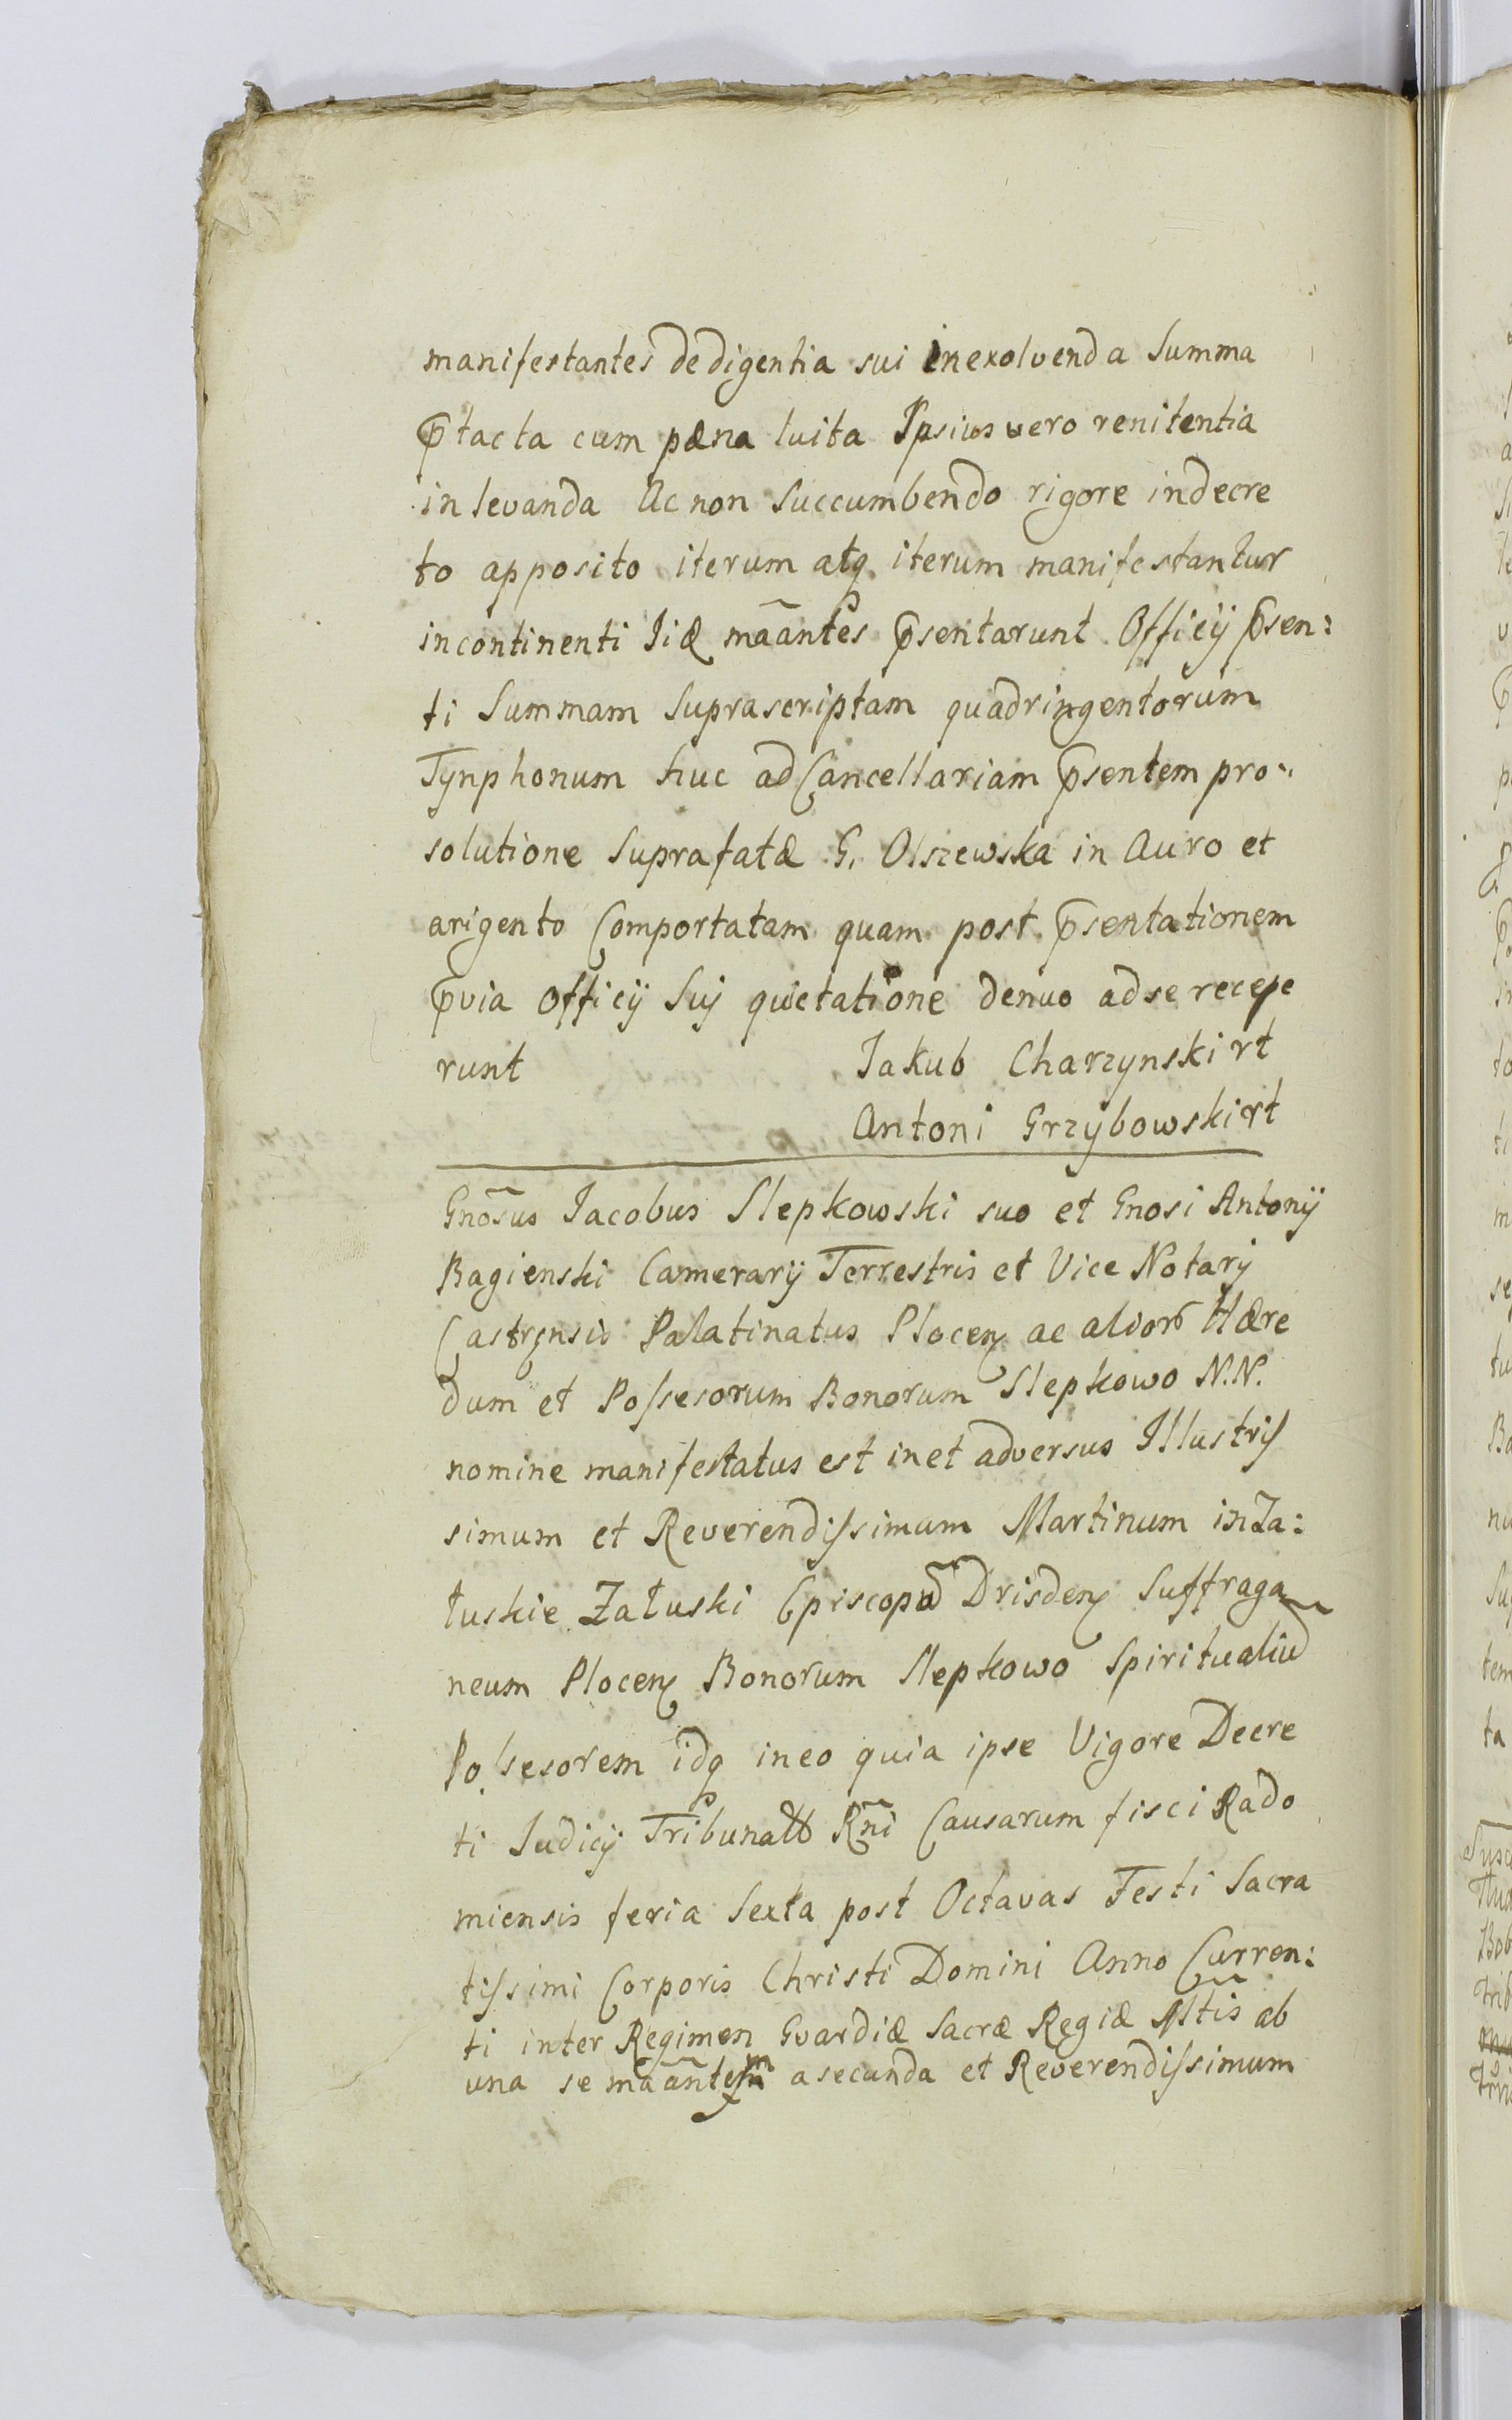 manifestantes de digentia sui in exolvenda Summa
p̃tacta cum pæna luita Ipsius vero renitentia
in levanda Ac non Succumbendo rigore in decre
to apposito iterum atq. iterum manifestantur
incontinenti Iid. mãantes p̃sentarunt Officÿ p̃sen:
ti Summam Suprascriptam quadringentorum
Tynphonum huc ad Cancellariam p̃sentem pro
solutione Suprafatæ G. Olszewska in Auro et
arigento Comportatam quam post p̃sentationem
p̃via Officÿ Sui quietatione denuo ad se recepe
runt Jakub Charzynski rt
Antoni Grzybowski rt
Gnõsus Jacobus Slepkowski suo et Gnosi Antonÿ
Bagienski Camerarÿ Terrestris et Vice Notarÿ
Castrensis Palatinatus Plocen ac alior Hære
dum et Possesorum Bonorum Slepkowo N.N.
nomine manifestatus est in et adversus Illustris
simum et Reverendissimum Martinum in Za:
łuskie Załuski Episcopũ Drisden Suffraga
neum Plocen Bonorum Slepkowo Spiritualiũ
Possesorem idq in eo quia ipse Vigore Decre
ti Judicÿ Tribunalis Rñi Causarum fisci Rado
miensis feria Sexta post Octavas Festi Sacra
tissimi Corporis Christi Domini Anno Curren:
ti inter Regimen Gvardiæ Sacræ Regiæ Mtis ab
una se mãantem a secunda et Reverendissimum